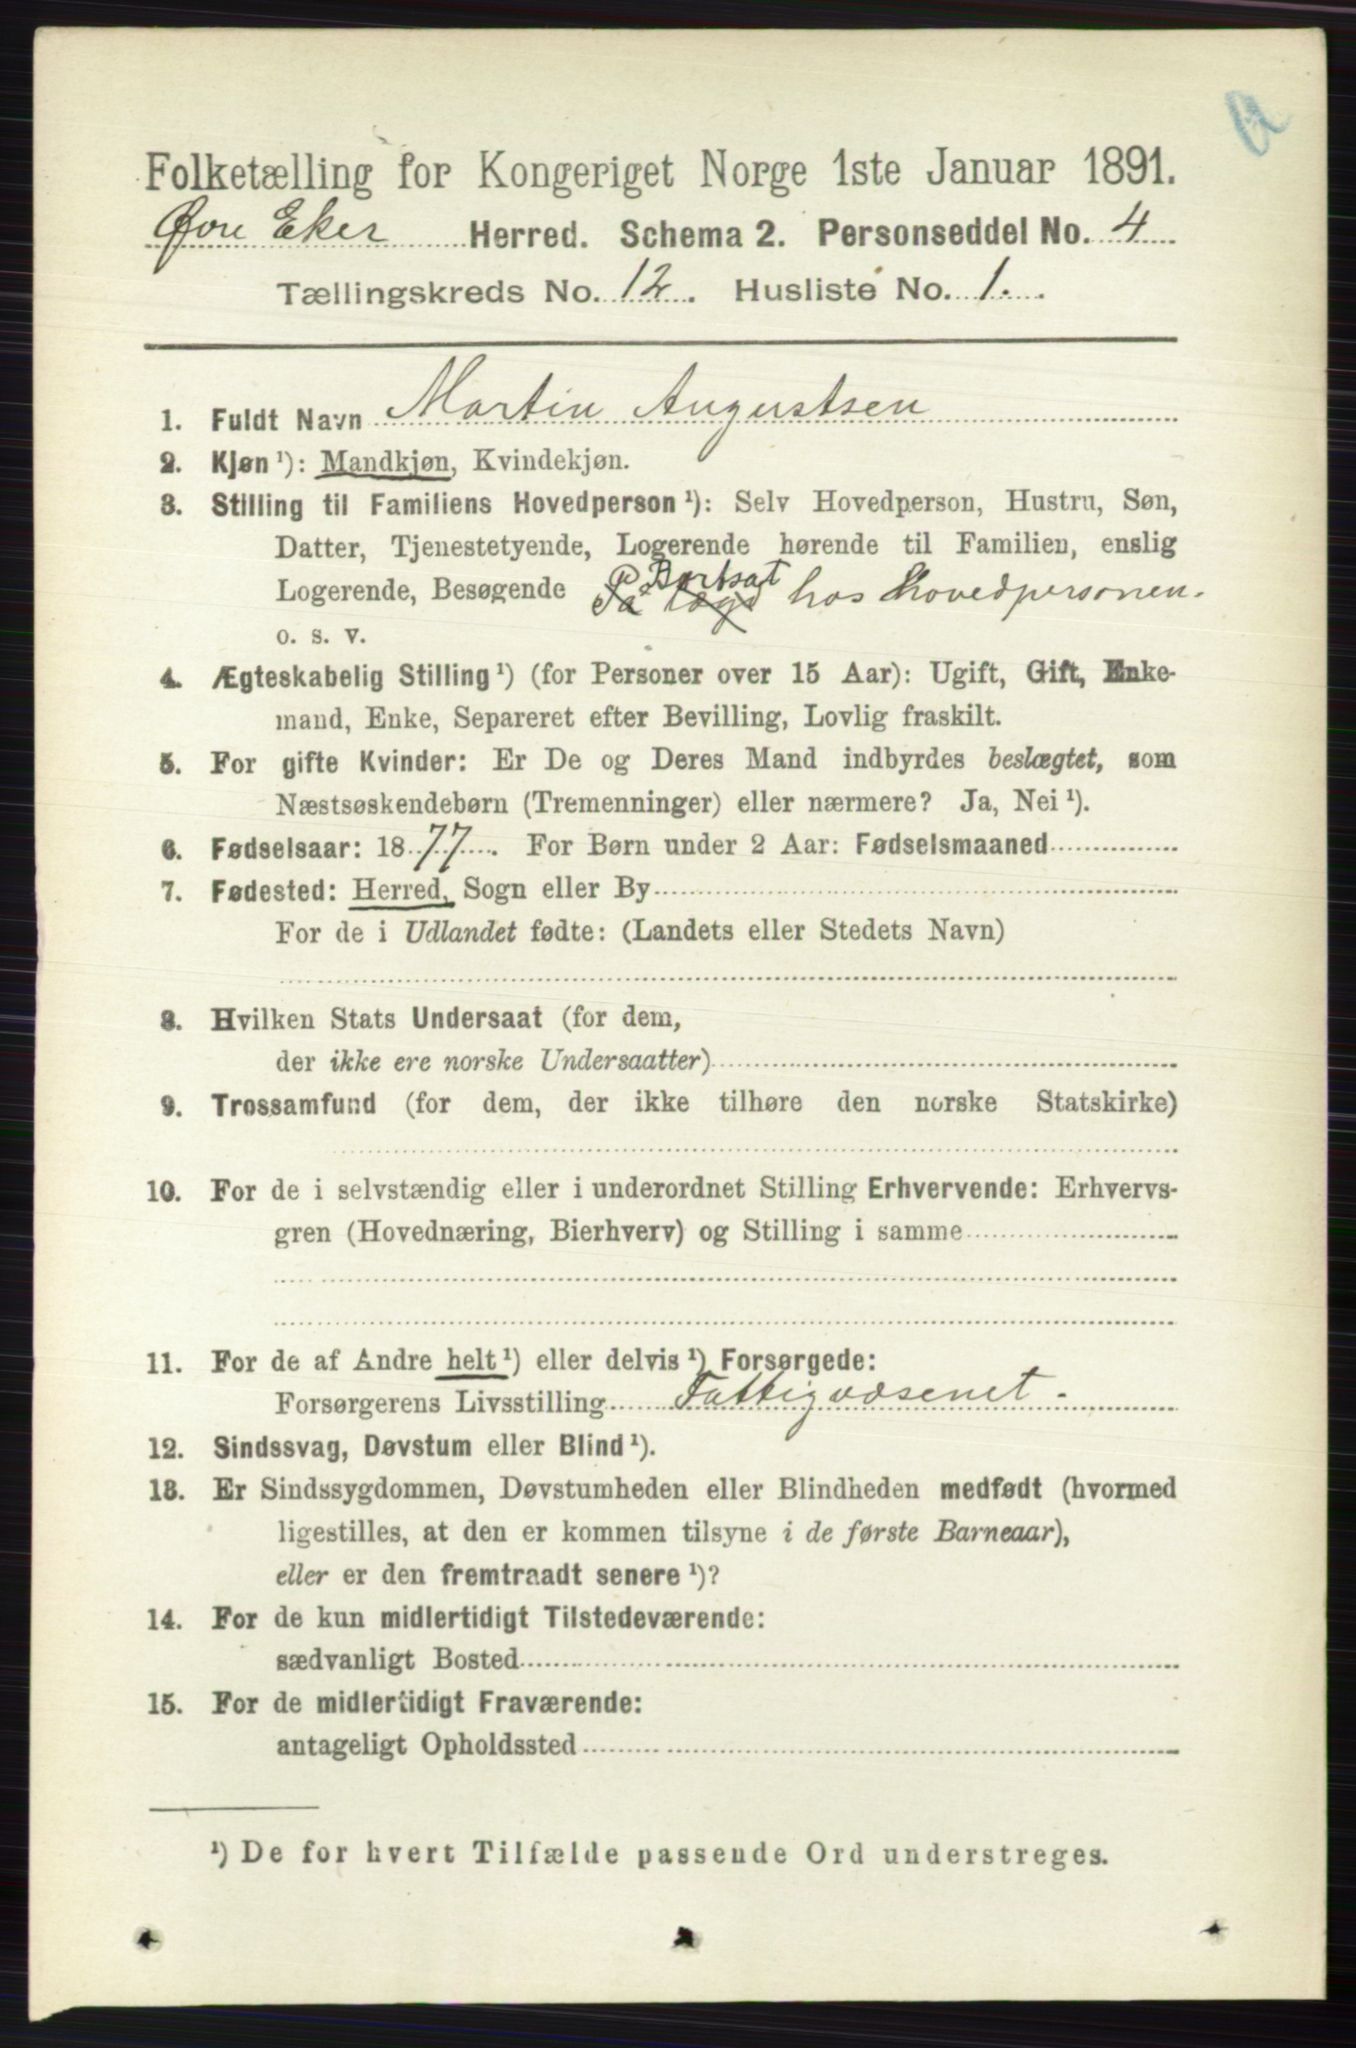 Folketælling for Kongeriget Norge 1ste Januar 1891.
Øvre Eker Herred. Schema 2. Personseddel No. 4
Tællingskreds No. 12. Husliste No. 1.
1. Fuldt Navn Martin Augustsen
2. Kjøn ¹): Mandkjøn, Kvindekjøn.
3. Stilling til Familiens Hovedperson ¹): Selv Hovedperson, Hustru, Søn,
Datter, Tjenestetyende, Logerende hørende til Familien, enslig
Bortsat
Logerende, Besøgende På lægd hos Hovedpersonen.
o. s. v.
4. Ægteskabelig Stilling ¹) (for Personer over 15 Aar): Ugift, Gift, Enke-
mand, Enke, Separeret efter Bevilling, Lovlig fraskilt.
5. For gifte Kvinder: Er De og Deres Mand indbyrdes beslægtet, som
Næstsøskendebørn (Tremenninger) eller nærmere? Ja, Nei ¹).
6. Fødselsaar: 1877. For Børn under 2 Aar: Fødselsmaaned
7. Fødested: Herred, Sogn eller By
For de i Udlandet fødte: (Landets eller Stedets Navn)
8. Hvilken Stats Undersaat (for dem,
der ikke ere norske Undersaatter)
9. Trossamfund (for dem, der ikke tilhøre den norske Statskirke)
10. For de i selvstændig eller i underordnet Stilling Erhvervende: Erhvervs-
gren (Hovednæring, Bierhverv) og Stilling i samme
11. For de af Andre helt ¹) eller delvis ¹) Forsørgede:
Forsørgerens Livsstilling Fattigvæsenet.
12. Sindssvag, Døvstum eller Blind ¹).
13. Er Sindssygdommen, Døvstumheden eller Blindheden medfødt (hvormed
ligestilles, at den er kommen tilsyne i de første Barneaar),
eller er den fremtraadt senere ¹)?
14. For de kun midlertidigt Tilstedeværende:
sædvanligt Bosted
15. For de midlertidigt Fraværende:
antageligt Opholdssted
¹) De for hvert Tilfælde passende Ord understreges.